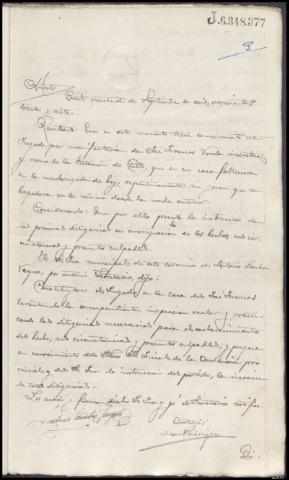 J.6.348.377
3
Auto
Curtis veintiseis de Septiembre de mil novecientos
treinta y siete.
Resultando: Que en este momento tiene conocimiento este
Juzgado por manifestación de José Francos Varela industrial
y vecino de la Estación de Curtis, que en su casa falleciera
en la madrugada de hoy repentinamente un joven que se
hospedara en la misma desde la noche anterior.
Considerando: Que por ello procede la instrucción de
las primeras diligencias en averiguación de los hechos, sus cir-
cunstancias y presuntos culpables.
El Sr. Juez municipal de este término Antonio Sánchez
por anterior Secretario, dijo:
Constitúyase el Juzgado en la casa del José Francos
levantando la correspondiente inspección ocular y practi-
cando las diligencias necesarias para el esclarecimiento
del hecho, sus circunstancias y presuntos culpables, y póngase
en conocimiento del Iltmo. Sr. Fiscal de la Audiencia pro-
vincial y del Sr. Juez de instrucción del partido, la incoación
de estas diligencias.
Lo acordó y firma dicho Sr. Juez y yo el Secretario certifico.